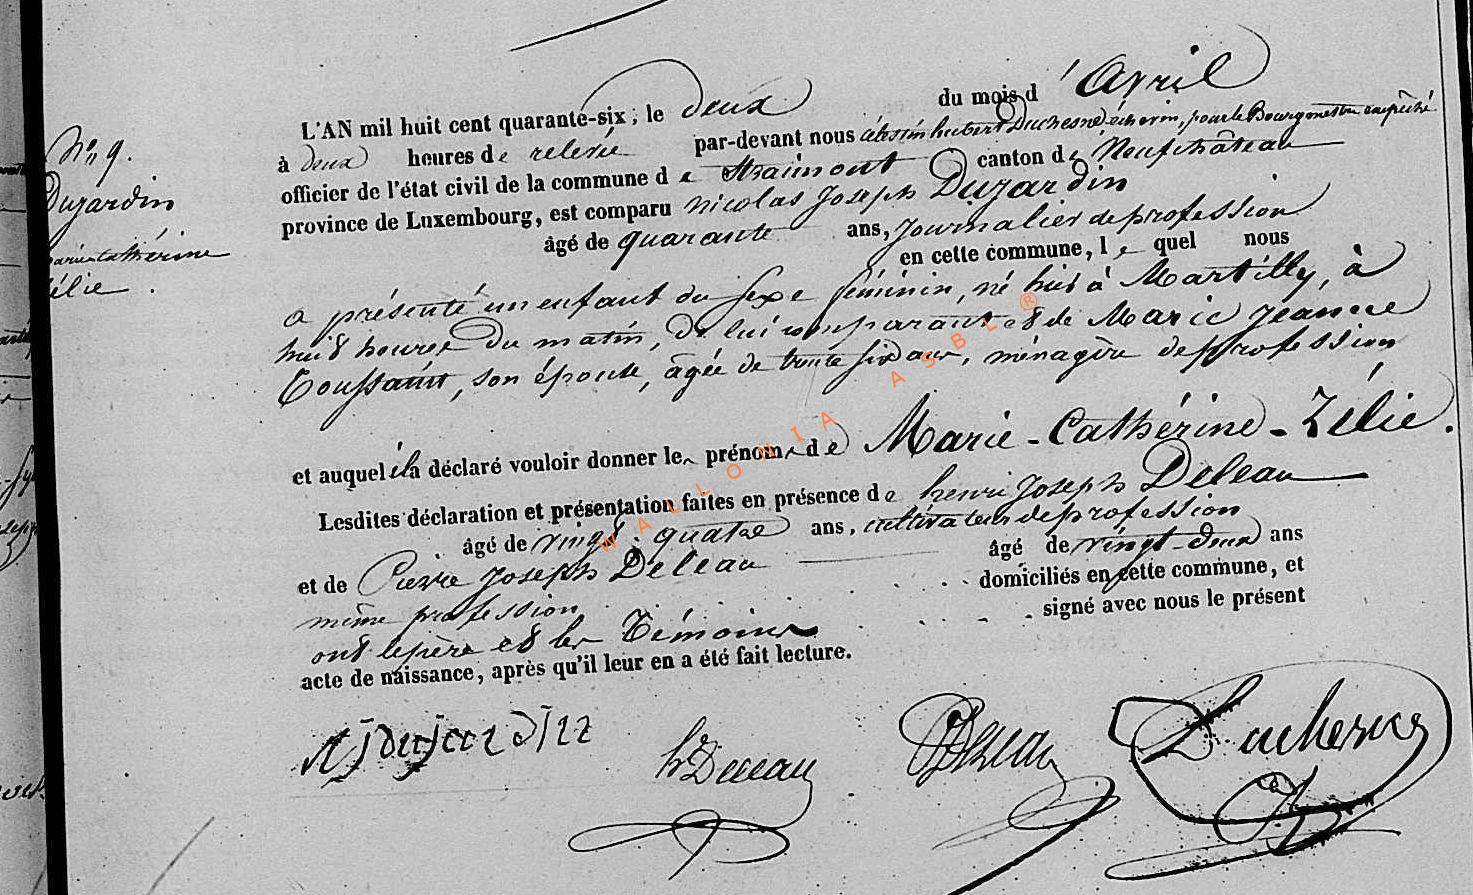 N° 9.
Dujardin
marie Cathérine
Zélie.
L'AN mil huit cent quarante-six, le deux du mois d'Avril
à deux heures de relevée par-devant nous Duchesne, échevin, pour le Bourgmestre empêché
officier de l'état civil de la commune de Straimont canton de Neufchâteau
province de Luxembourg, est comparu nicolas Joseph Dujardin
âgé de quarante ans, Journalier de profession
en cette commune, lequel nous
a présenté un enfant du sexe féminin, né hier à Martilly, à
huit heures du matin, de lui comparant et de Marie Jeanne
Toussaint, son épouse, âgée de trente six ans, ménagère de profession
et auquel il a déclaré vouloir donner les prénoms de Marie-Cathérine-Zélie.
Lesdites déclaration et présentation faites en présence de henri Joseph Deleau
âgé de vingt-quatre ans, cultivateur de profession
et de Pierre Joseph Deleau âgé de vingt-deux ans
même profession domiciliés en cette commune, et
ont le père et les Témoins signé avec nous le présent
acte de naissance, après qu'il leur en a été fait lecture.
WALLONIA ASBL ®
nj dujardin
h Deleau
PJ Deleau
Duchesne